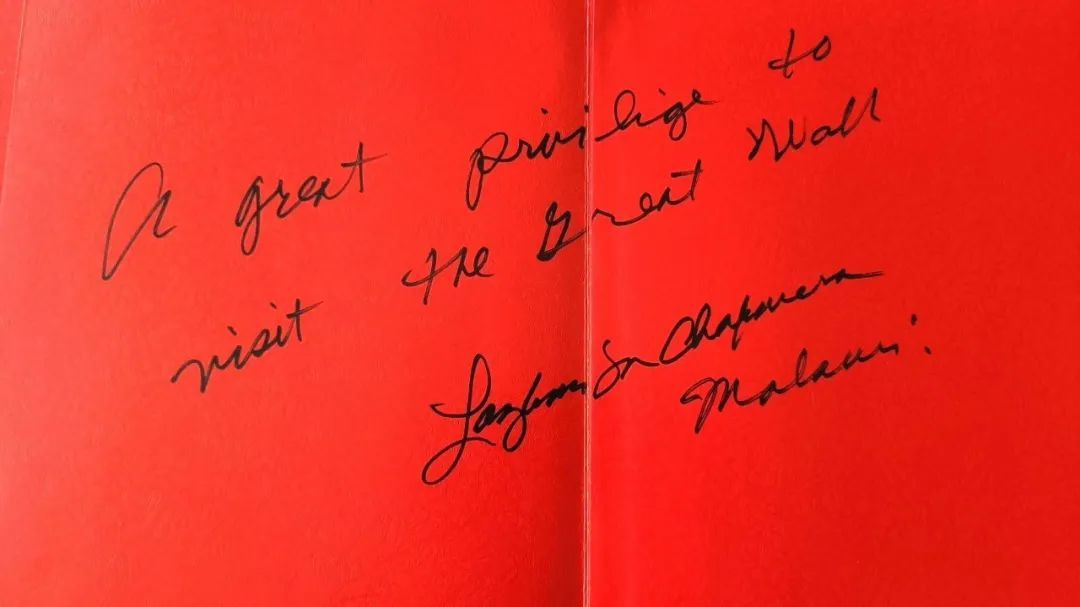 A great privilige to
visit the Great Wall
Malawi.